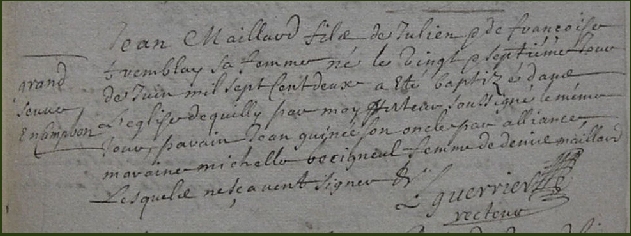 Jean Maillard fils de Julien & de françoise
tremblay sa femme né le vingt & septiéme jour
de Juin mil sept Cent deux a été baptizé dans
L'eglise de quilly par moy Recteur soussigné le méme
Jour, parain Jean quincé son oncle par alliance,
maraine michelle femme de denis maillard
Lesquels ne sçavent signer &
L guerrier
recteur
grand
En Campbon